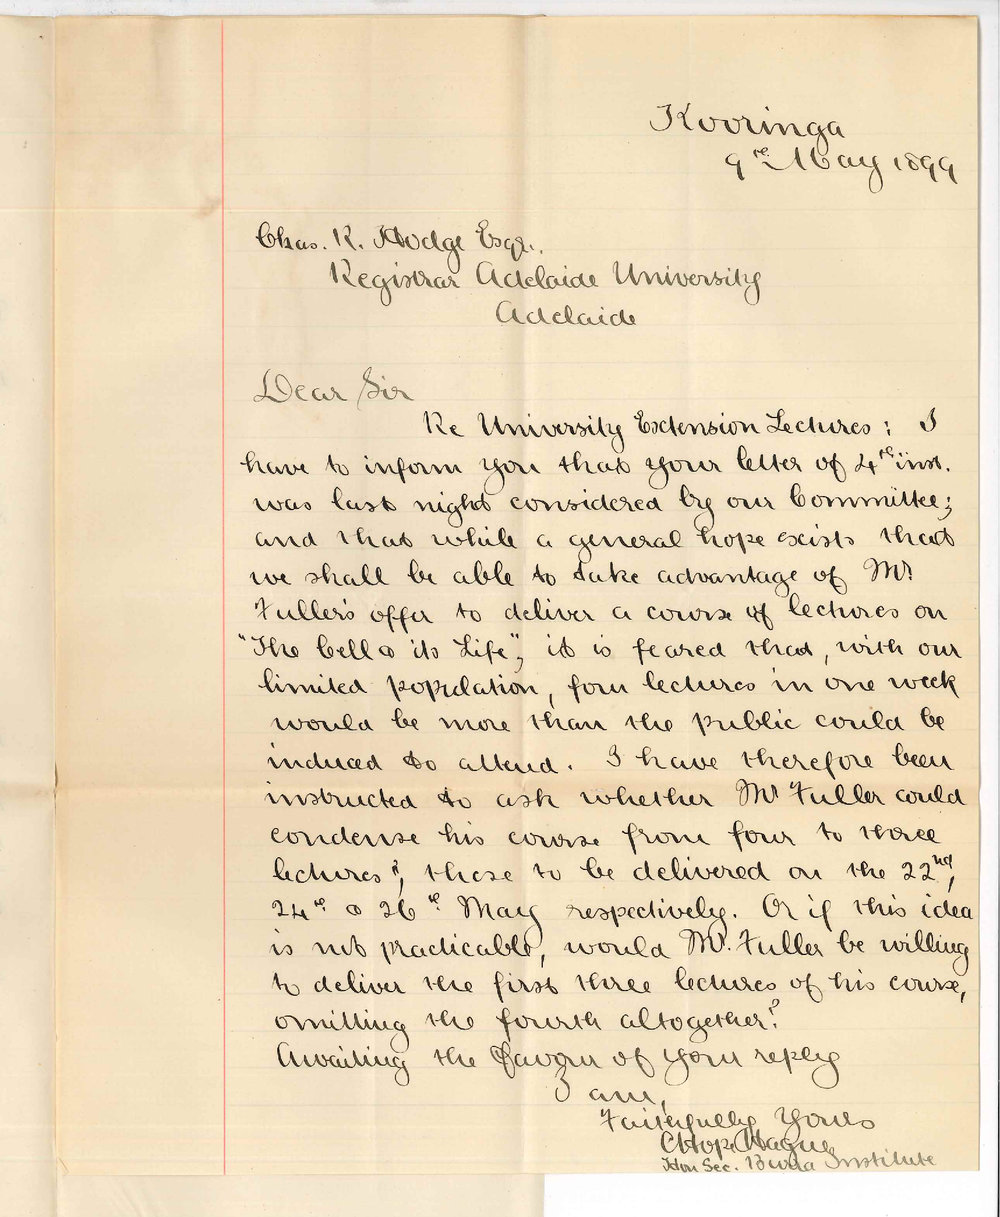 Kooringa
9th May 1899
Chas. R. Hodge Esqr.
Registrar Adelaide University
Adelaide
Dear Sir
Re University Extension Lectures: I
have to inform you that your letter of 4th inst.
was last night considered by our Committee;
and that while a general hope exists that
we shall be able to take advantage of Mr
Fuller's offer to deliver a course of lectures on
"The Cell & its Life", it is feared that, with our
limited population, four lectures in one week
would be more than the public could be
induced to attend. I have therefore been
instructed to ask whether Mr Fuller could
condense his course from four to three
lectures?, these to be delivered on the 22nd,
24th & 26th May respectively. Or if this idea
is not practicable, would Mr. Fuller be willing
to deliver the first three lectures of his course,
omitting the fourth altogether?
Awaiting the favour of your reply
I am,
Faithfully Yours
C Hope Hague
Hon Sec. Burra Institute